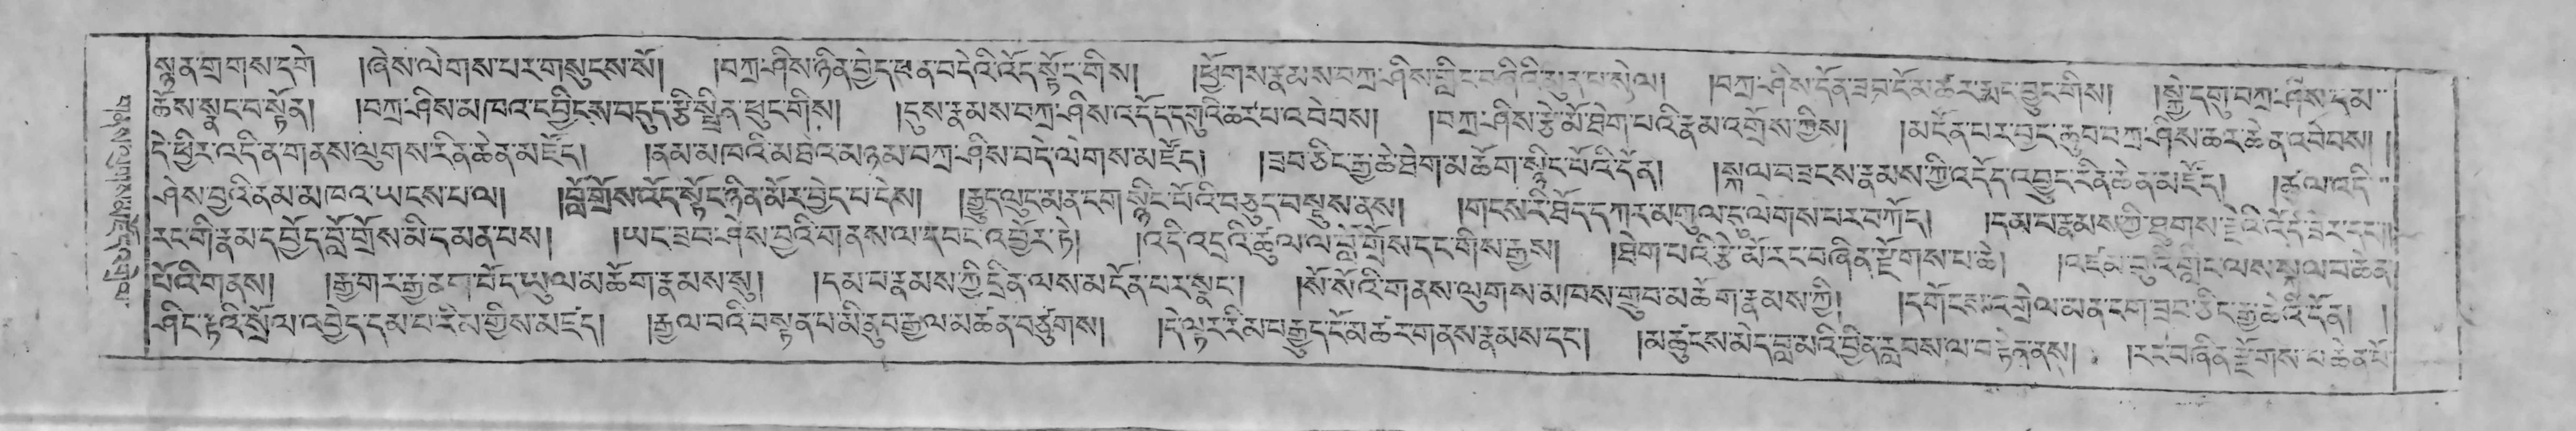 སྙན་གྲགས་དགེ །ཞེས་ལེགས་པར་གསུངས་སོ། །བཀྲ་ཤིས་ཉིན་བྱེད་ཕན་བདེའི་འོད་སྟོང་གིས། །ཕྱོགས་རྣམས་བཀྲ་ཤིས་གླིང་བཞིའི་མུན་པ་སེལ། །བཀྲ་ཤིས་དོན་ཟབ་ངོ་མཚར་རླང་བྱུང་གིས། །སྐྱེ་དགུ་བཀྲ་ཤིས་དམ་
ཆོས་སྣང་བ་སྟོན། །བཀྲ་ཤིས་མཁའ་དབྱིངས་བདུད་རྩི་སྤྲིན་ཕུང་གིས། །དུས་རྣམས་བཀྲ་ཤིས་འདོད་དགུའི་ཆར་པ་འབེབས། །བཀྲ་ཤིས་རྩེ་མོ་ཐེག་པའི་རྣམ་འགྲོས་ཀྱིས། །མངོན་པར་བྱང་ཆུབ་བཀྲ་ཤིས་ཆར་ཆེན་འབེབས། །
དེ་ཕྱིར་འདི་ན་གནས་ལུགས་རིན་ཆེན་མཛོད། །ནམ་མཁའི་མཐའ་མཉམ་བཀྲ་ཤིས་བདེ་ལེགས་མཛོད། །ཟབ་ཅིང་རྒྱ་ཆེ་ཐེག་མཆོག་སྙིང་པོའི་དོན། །སྐལ་བཟངས་རྣམས་ཀྱི་འདོད་འབྱུང་རིན་ཆེན་མཛོད། །ཚུལ་འདི་
ཤེས་བྱའི་ནམ་མཁའ་ཡངས་པ་ལ། །བློ་གྲོས་འོད་སྟོང་ཉིན་མོར་བྱེད་པ་ངེས། །རྒྱུད་ལུང་མན་ངག་སྙིང་པོའི་བཅུད་བསྡུས་ནས། །གངས་རི་ཐོད་དཀར་མགུལ་དུ་ལེགས་པར་བཀོད། །དམ་པ་རྣམས་ཀྱི་ཐུགས་རྗེའི་འོད་ཟེར་དང་།
རང་གི་རྣམ་དཔྱོད་བློ་གྲོས་མི་དམན་པས། །ཡང་ཟབ་ཤེས་བྱའི་གནས་ལ་དབང་འབྱོར་ཏེ། །འདི་འདྲའི་ཚུལ་ལ་བློ་གྲོས་དང་གིས་རྒྱས། །ཐེག་པའི་རྩེ་མོ་རང་བཞིན་རྫོགས་པ་ཆེ། །འཛམ་བུ་རི་གླིང་ལས་སྐལ་བ་ཆེན་
པོའི་གནས། །རྒྱ་གར་རྒྱ་ནག་བོད་ཡུལ་མཆོག་རྣམས་སུ། །དམ་པ་རྣམས་ཀྱི་དྲིན་ལས་མངོན་པར་སྣང་། །སོ་སོའི་གནས་ལུགས་མཁས་གྲུབ་མཆོག་རྣམས་ཀྱི། །དགོངས་འགྲེལ་མན་ངག་ཟབ་ཅིང་རྒྱ་ཆེའི་དོན། །
ཤིང་རྟའི་སྲོལ་འབྱེད་དམ་པ་རིམ་གྱིས་མཛད། །རྒྱལ་བའི་བསྟན་པ་མི་ནུབ་རྒྱལ་མཚན་བཙུགས། །དེ་ལྟར་རིམ་པ་རྒྱུད་ངོ་མཚར་གནས་རྣམས་དང་། །མཚུངས་མེད་བླ་མའི་བྱིན་རླབས་ལ་བརྟེན་ནས། །རང་བཞིན་རྫོགས་པ་ཆེན་པོ་